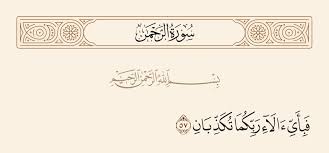 سُورَةُ الرَّحْمَٰن
بِسْمِ اللَّهِ الرَّحْمَٰنِ الرَّحِيمِ
فَبِأَيِّ ءَالَآءِ رَبِّكُمَا تُكَذِّبَانِ ٥٧